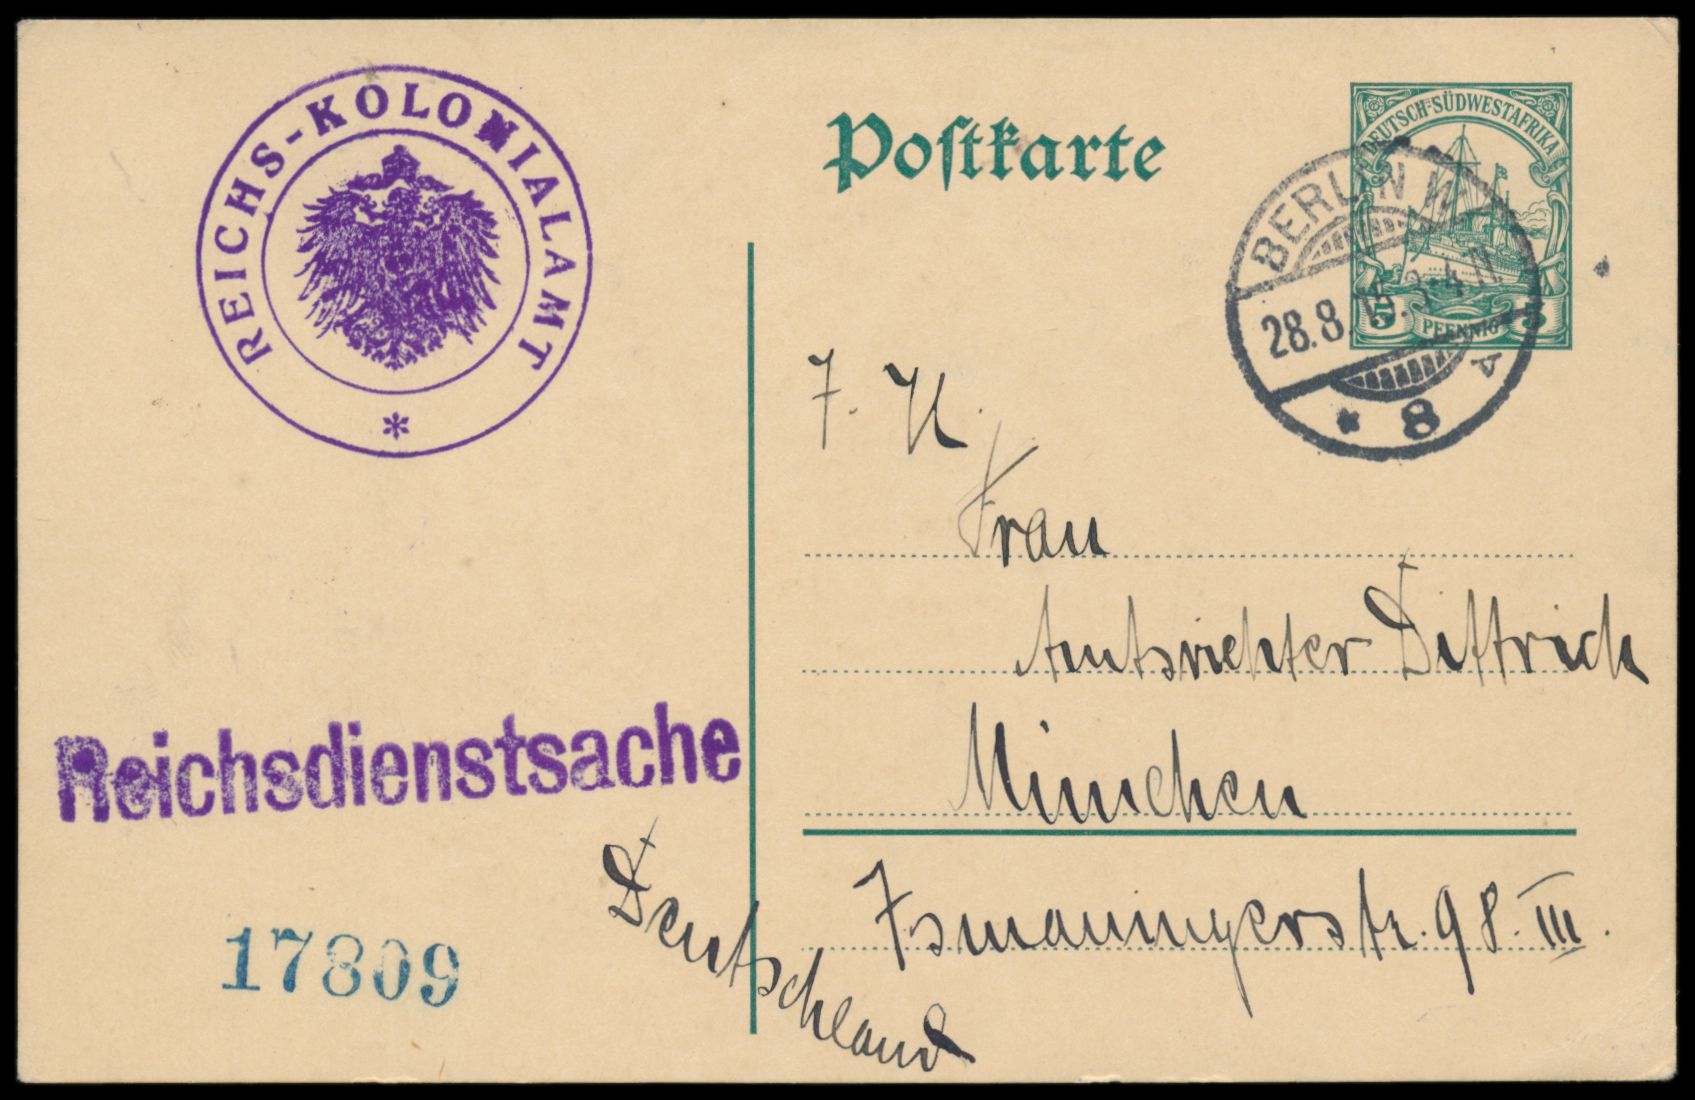 REICHS-KOLONIALAMT
*
Postkarte
DEUTSCH-SÜDWESTAFRIKA
5 PFENNIG 5
BERLIN W
28.8.15. 3-4 N.
* 8 A
F. K.
Frau
Amtsrichter Dittrich
München
Ismaningerstr. 98. III.
Deutschland
Reichsdienstsache
17809